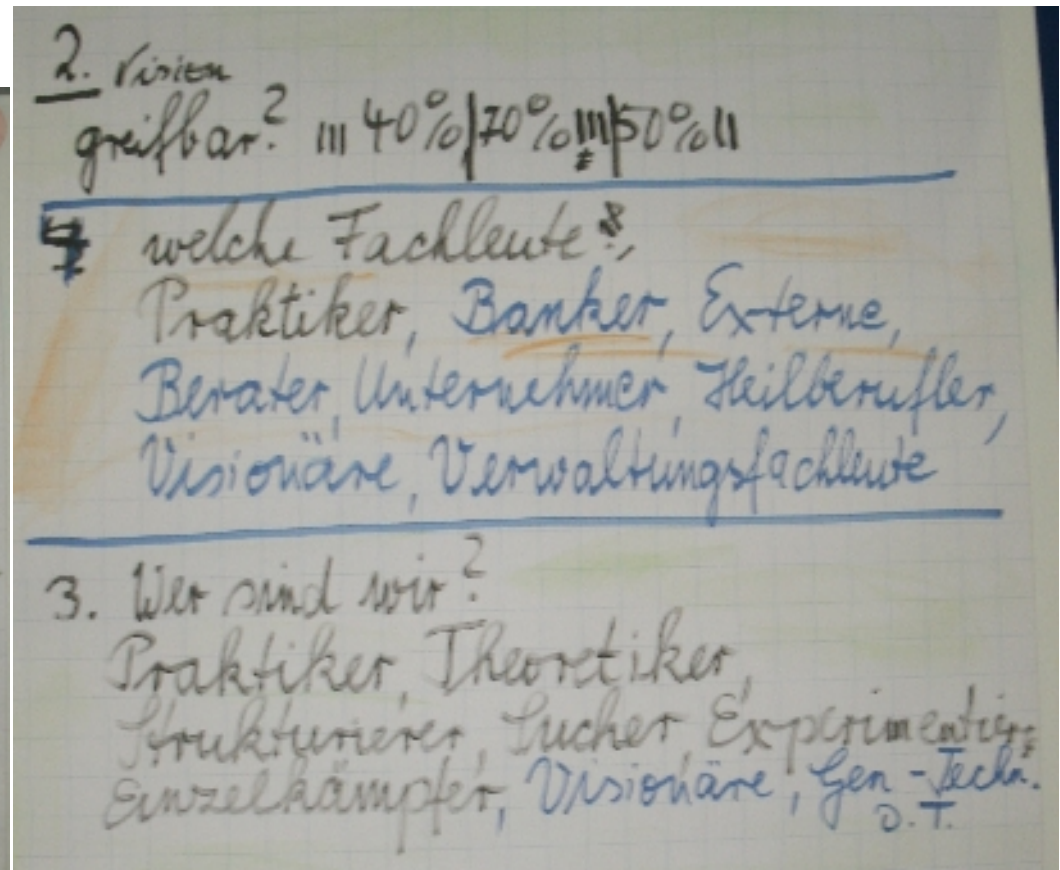 2. Vision
greifbar? III 40%|70% III|50% II
welche Fachleute?,
Praktiker, Banker, Externe,
Berater, Unternehmer, Heilberufler,
Visionäre, Verwaltungsfachleute
3. Wer sind wir?
Praktiker, Theoretiker,
Strukturierer, Sucher, Experimentier:
Einzelkämpfer, Visionäre, Gen-Techn.
O.T.